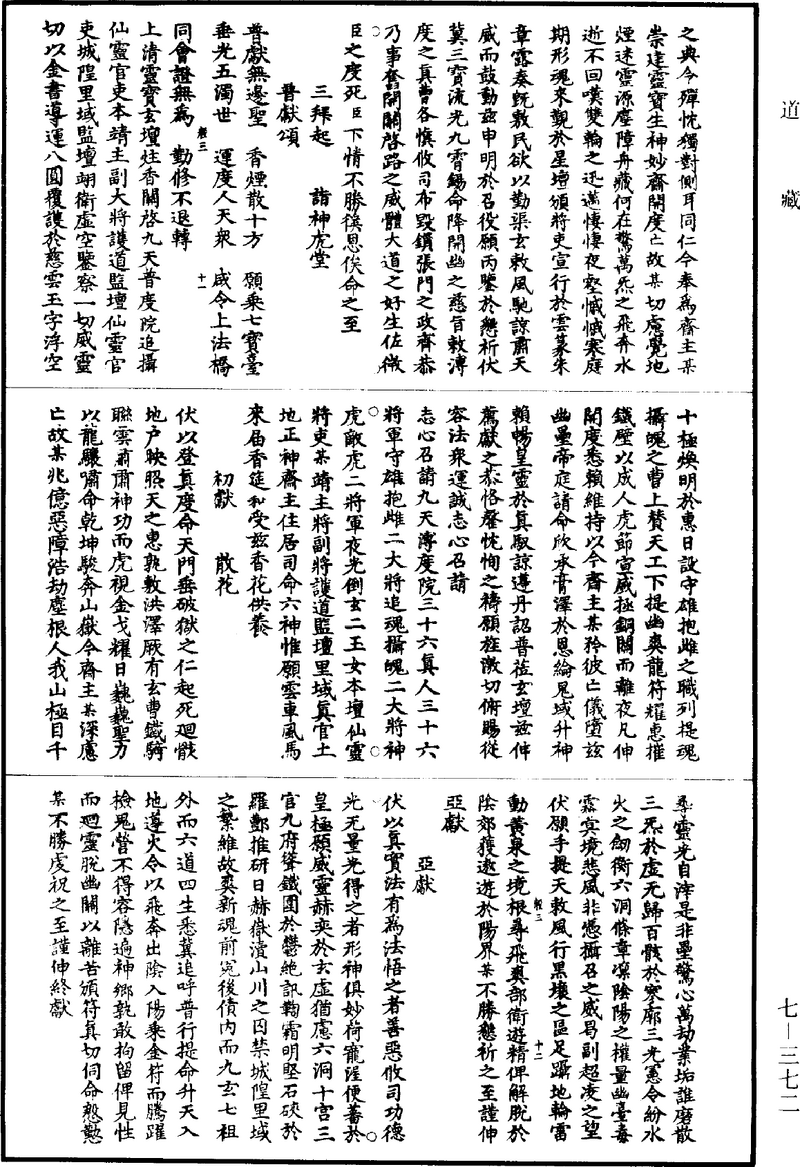 道藏
之典今殫忱獨對側耳同仁今奉為齋主某
崇建靈寶生神妙齋開度亡故某切慮覺地
煙迷靈源塵障舟藏何在驚萬炁之飛奔水
逝不回嘆雙輪之迅邁悽悽夜壑慽慽寒庭
期形魂來觀於星壇頒將吏宣行於雲篆朱
章露奏既敷民欲以勤渠玄敕風馳諒肅天
威而鼓動茲申明於召役願丙鑒於懇祈伏
冀三寶流光九霄錫命降開幽之慈旨敕溥
度之真曹各慎攸司布毀鑕張門之政齊恭
乃事奮開關啓路之威體大道之好生佐微
臣之度死臣下情不勝徯恩俟命之至
三拜起　詣神虎堂
普獻頌
普獻無邊聖　香煙散十方　願乘七寶臺
垂光五濁世　運度人天衆　咸令上法橋
同會證無為　勤修不退轉
上清靈寶玄壇炷香關啓九天普度院追攝
仙靈官吏本靖主副大將護道監壇仙靈官
吏城隍里域監壇翊衛虛空鑒察一切威靈
切以金書導運八圓覆護於慈雲玉字浮空
十極煥明於惠日設守雄抱雌之職列提魂
攝魄之曹上贊天工下提幽爽龍符耀惠摧
鐵壁以成人虎節宣威拯銅關而離夜凡伸
開度悉賴維持以今齋主某矜彼亡儀墮茲
幽壘帝庭請命欣承膏澤於恩綸鬼域升神
賴暢皇靈於真馭諒遵丹詔普莅玄壇茲伸
薦獻之恭恪罄忱恂之禱願旌徽切俯賜從
容法衆運誠志心召請
志心召請九天溥度院三十六真人三十六
將軍守雄抱雌二大將追魂攝魄二大將神
虎敵虎二將軍夜光倒玄二玉女本壇仙靈
將吏某靖主將副將護道監壇里域真官土
地正神齋主住居司命六神惟願雲車風馬
來届香筵和受茲香花供養
初獻　散花
伏以登真度命天門垂破獄之仁起死廻骸
地户映照天之惠孰敷洪澤厥有玄曹鐵騎
聯雲肅肅神功而虎視金戈耀日巍巍聖力
以龍驤嘯命乾坤駿奔山嶽今齋主某深慮
亡故某兆億惡障浩劫塵根人我山極目千
尋靈光自滓是非壘驚心萬劫業垢誰磨散
三炁於虛无歸百骸於寥廓三光憲令紛水
火之劒衛六洞條章凜陰陽之權量幽臺毒
霧寘境悲風非憑攝召之威曷副超凌之望
伏願手提天敕風行黑壤之區足躡地輪雷
動黄泉之境根尋飛爽部衛遊精俾解脫於
陰郊獲遨遊於陽界某不勝懇祈之至謹伸
亞獻
亞獻
伏以真實法有為法悟之者善惡攸司功德
光无量光得之者形神俱妙荷寵渥便蕃於
皇極願威靈赫奕於玄虛猶慮六洞十宮三
官九府聳鐵圍於鬱絶訊鞫霜明堅石硤於
羅酆推研日赫嶽瀆山川之囚禁城隍里域
之繫維故爽新魂前寃後債内而九玄七祖
外而六道四生悉冀追呼普行提命升天入
地遵火令以飛奔出陰入陽乘金符而騰躍
檢鬼營不得容隱遍神鄉孰敢拘留俾見性
而廻靈脫幽關以離苦頒符真切伺命慇懃
某不勝虔祝之至謹伸終獻
十一
十二
七—三七二